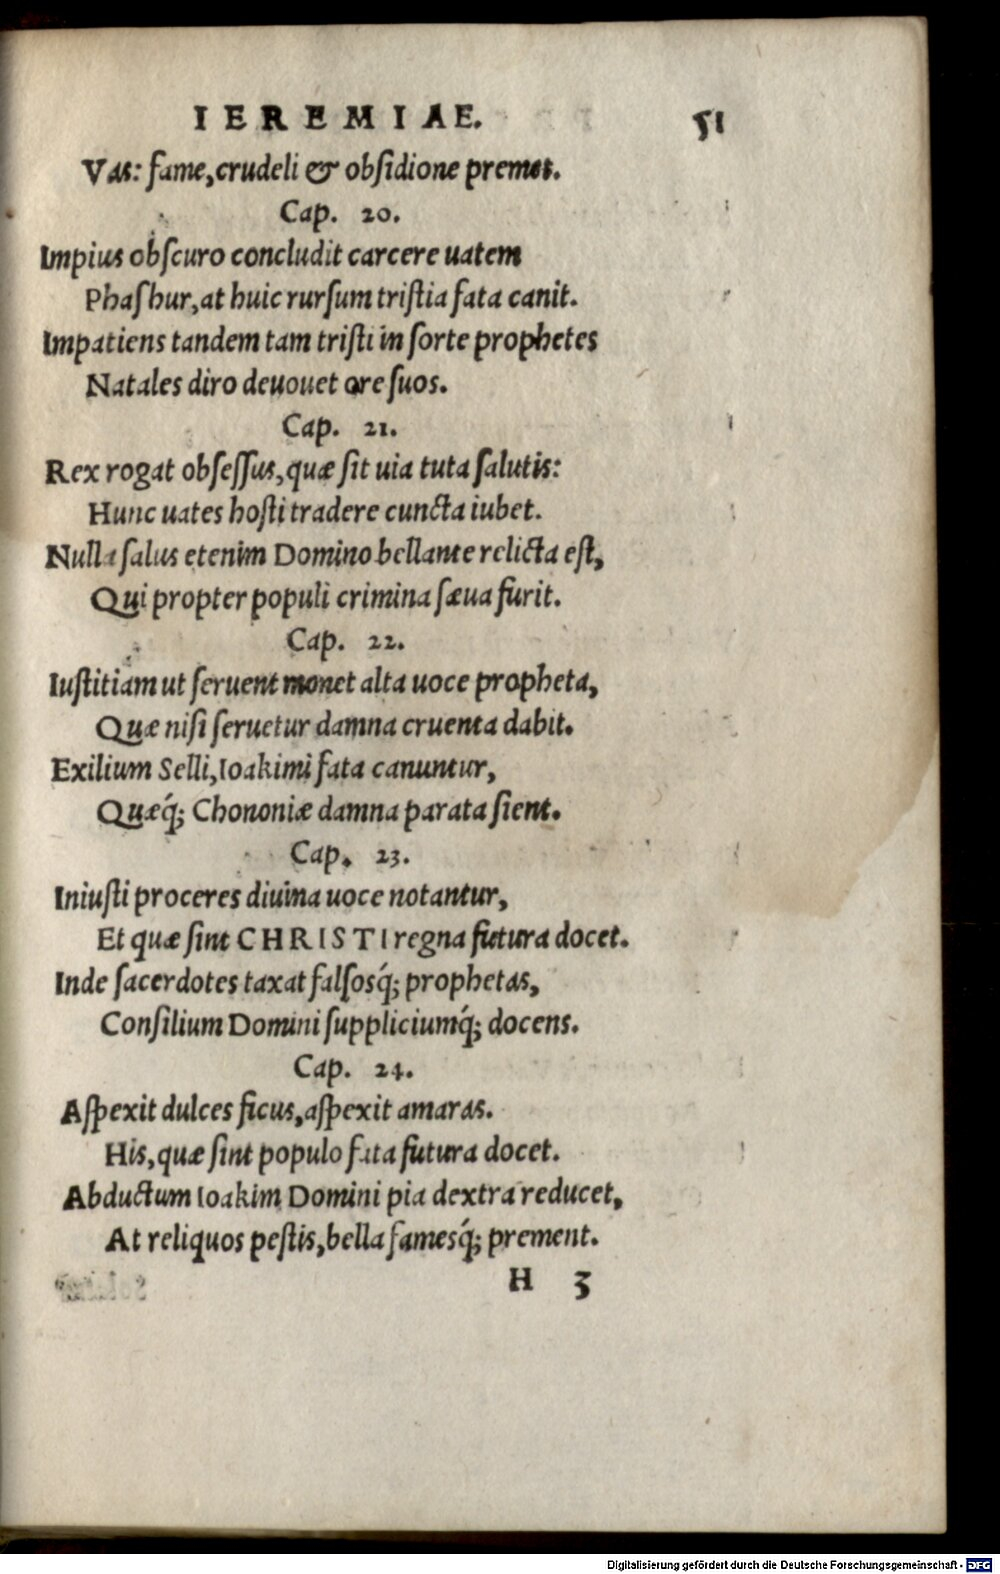 IEREMIAE. 51
Vas: fame, crudeli & obsidione premet.
Cap. 20.
Impius obscuro concludit carcere uatem
Phashur, at huic rursum tristia fata canit.
Impatiens tandem tam tristi in sorte prophetes
Natales diro deuouet ore suos.
Cap. 21.
Rex rogat obsessus, quæ sit uia tuta salutis:
Hunc uates hosti tradere cuncta iubet.
Nulla salus etenim Domino bellante relicta est,
Qui propter populi crimina sæua furit.
Cap. 22.
Iustitiam ut seruent monet alta uoce propheta,
Quæ nisi seruetur damna cruenta dabit.
Exilium Selli, Ioakimi fata canuntur,
Quæq́; Chononiæ damna parata sient.
Cap. 23.
Iniusti proceres diuina uoce notantur,
Et quæ sint CHRISTI regna futura docet.
Inde sacerdotes taxat falsosq́; prophetas,
Consilium Domini suppliciumq́; docens.
Cap. 24.
Aspexit dulces ficus, aspexit amaras.
His, quæ sint populo fata futura docet.
Abductum Ioakim Domini pia dextra reducet,
At reliquos pestis, bella famesq́; prement.
H 3
Digitalisierung gefördert durch die Deutsche Forschungsgemeinschaft - DFG